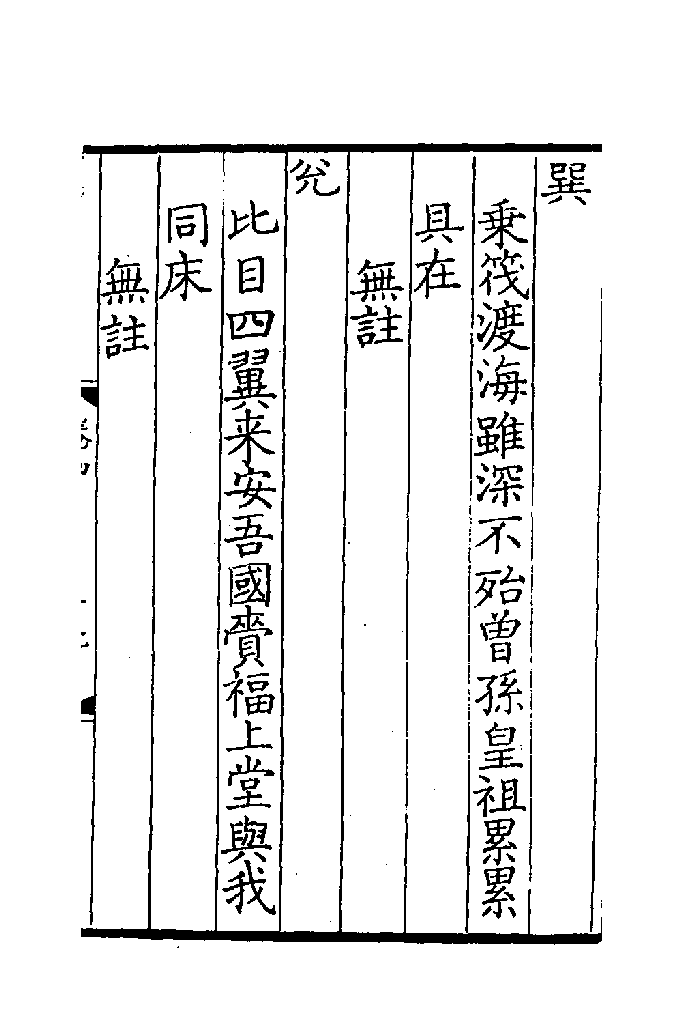 巽
乗筏渡海雖深不殆曽孫皇祖累累
具在
無註
兊
比目四翼来安吾國賫福上堂與我
同床
無註